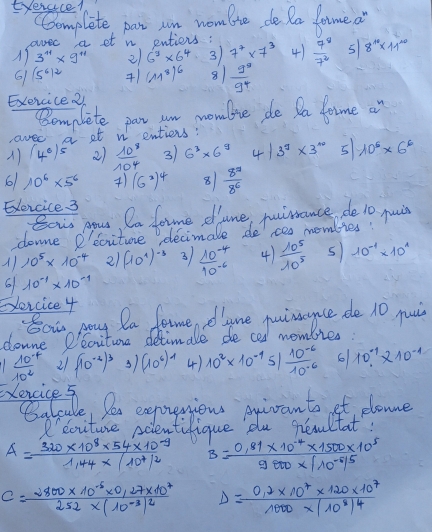 Exercice 1
Complète par un nombre de la forme aⁿ
avec a et n entiers :
1) 3¹¹ × 9¹¹ 2) 6³ × 6⁴ 3) 7⁷ × 7³ 4) 7⁸/7² 5) 8¹⁰ × 11¹⁰
6) (5⁶)² 7) (11⁸)⁶ 8) 9⁹/9⁴
Exercice 2
Complète par un nombre de la forme aⁿ
avec a et n entiers :
1) (4⁶)⁵ 2) 10⁸/10⁴ 3) 6³ × 6⁹ 4) 3⁹ × 3¹⁰ 5) 10⁶ × 6⁶
6) 10⁶ × 5⁶ 7) (6³)⁴ 8) 8⁹/8⁶
Exercice 3
Ecris sous la forme d'une puissance de 10 puis
donne l'écriture décimale de ces nombres :
1) 10⁵ × 10⁻⁴ 2) (10¹)⁻³ 3) 10⁻⁴/10⁻⁶ 4) 10⁵/10⁵ 5) 10⁻¹ × 10¹
6) 10⁻¹ × 10⁻¹
Exercice 4
Ecris sous la forme d'une puissance de 10 puis
donne l'écriture décimale de ces nombres :
10⁻⁴/10² 2) (10⁻²)³ 3) (10⁶)⁻¹ 4) 10² × 10⁻¹ 5) 10⁻⁶/10⁻⁶ 6) 10⁻¹ × 10⁻¹
Exercice 5
Calcule les expressions suivants et donne
l'écriture scientifique du résultat :
A = 320 × 10⁸ × 54 × 10⁻⁹ / 1,44 × (10⁷)² B = 0,81 × 10⁻⁴ × 1500 × 10⁵ / 9000 × (10⁻⁵)⁵
C = 2800 × 10⁻⁵ × 0,27 × 10⁷ / 252 × (10⁻³)² D = 0,2 × 10⁷ × 120 × 10⁷ / 1000 × (10⁸)⁴